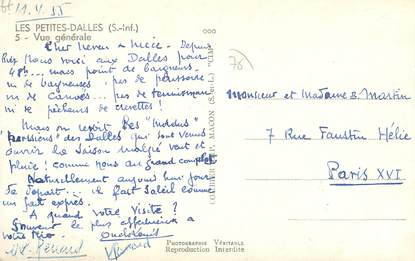 11.4.55
LES PETITES-DALLES (S.-Inf.)
5 - Vue générale
Cher neveu & nièce. Depuis
Près nous voici aux Dalles pour
48h... mais point de baigneurs
ni de baigneuses.. pas de périssoire
ni de Canoës... pas de tennisman
ni de pêcheurs de crevettes!
Mais on revoit les "
" des Dalles qui sont venus
ouvrir la Saison malgré vent et
pluie! comme nous au grand complet
Naturellement aujourd'hui jour
de départ... il fait Soleil comme
un fait exprès.
A quand votre Visite?
Souvenir le plus affectueux à
votre
"CIM"
COMBIER IMP. MACON (S.-et-L.)
76
Monsieur et Madame Martin
7 Rue Faustin Hélie
Paris XVI
PHOTOGRAPHIE VÉRITABLE
Reproduction Interdite